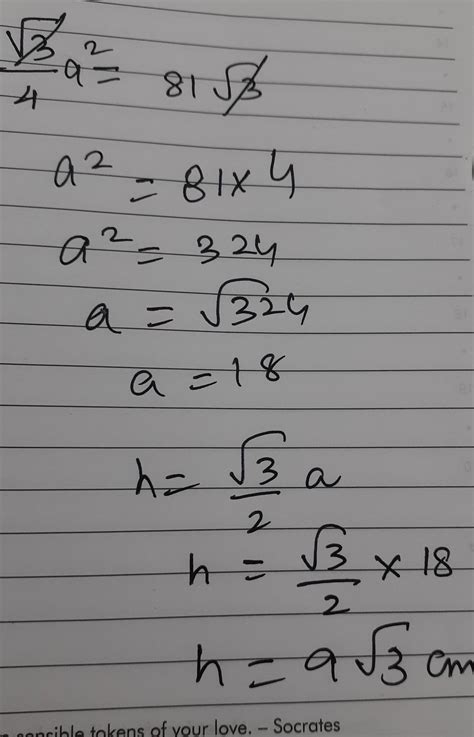 √3/4 a² = 81√3
a² = 81 × 4
a² = 324
a = √324
a = 18
h = √3/2 a
h = √3/2 × 18
h = 9√3 cm
sensible tokens of your love. – Socrates